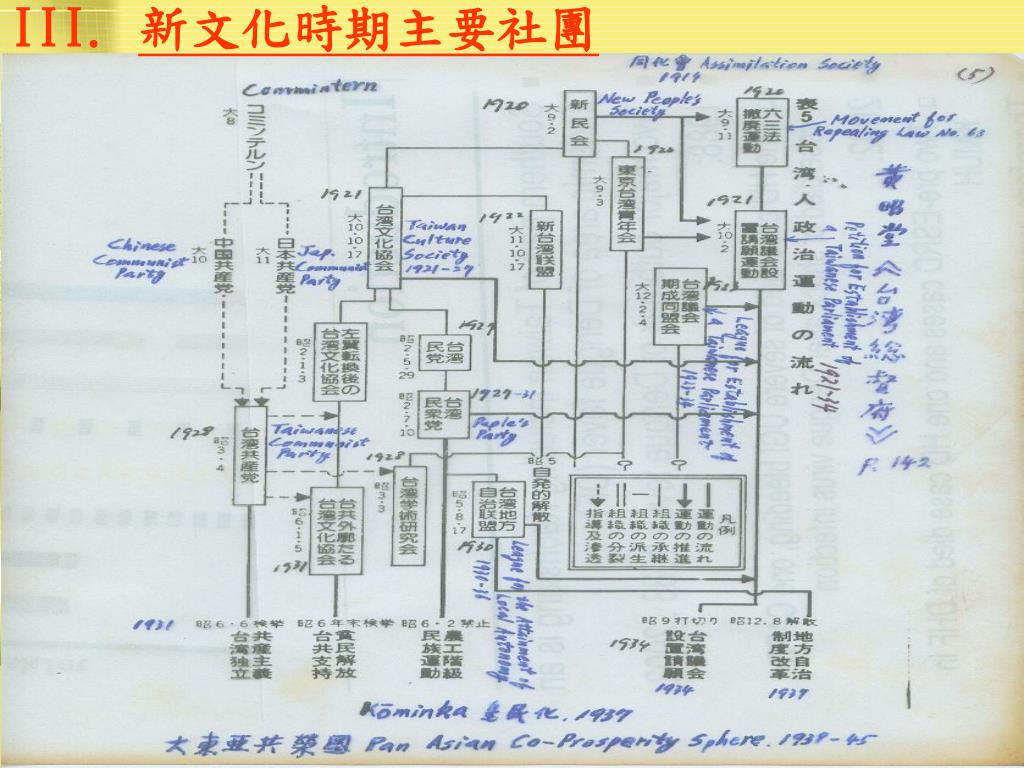 III. 新文化時期主要社團
同化會 Assimilation Society
1914
(5)
Commintern
大8
コミンテルン
1920
大9・2
新民会
New People's
Society
1920
大9・11
六三法
撤廃運動
Movement for
Repealing Law No. 63
表5 台湾人政治運動の流れ
黃昭堂《台湾総督府》
P. 142
1920
大9・3
東京台湾青年会
1921
大10・10・17
台湾文化協会
Taiwan
Culture
Society
1921-27
1922
大11・10・17
新台湾联盟
1921
大10・2
台湾議会設
置請願運動
Petition for Establishment of
a Taiwanese Parliament
1921-34
Chinese
Communist
Party
大10
中国共産党
大11
日本共産党
Jap.
Communist
Party
1923
大12・2・4
台湾議会
期成同盟会
League for Establishment of
a Taiwanese Parliament
昭2・1・3
左翼転換後の
台湾文化協会
昭2・5・29
台湾
民党
昭2・7・10
台湾
民衆党
1927-31
People's
Party
1928
昭3・4
台湾共産党
Taiwanese
Communist
Party
1928
昭3・3
台湾学術研究会
昭6・1・5
台共外郭たる
台湾文化協会
1931
昭5・8・17
台湾地方
自治联盟
1930
League for the Attainment of
Local Autonomy
1930-36
昭5
自発的解散
?
?
凡例
運動の流れ
運動の推進
組織の承継
組織の派生
組織の分裂
指導及滲透
1931
昭6・6検挙
昭6年末検挙
昭6・2禁止
昭9打切り
昭12.8解散
共産主義
台湾独立
貧民解放
台共支持
農工階級
民族運動
1934
台湾議会
設置請願
1934
地方自治
制度改革
1937
Kōminka 皇民化. 1937
大東亜共榮圏 Pan Asian Co-Prosperity Sphere. 1938-45